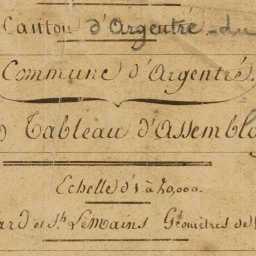 Canton d'Argentré-du
Commune d'Argentré.
Tableau d'Assembl
Echelle d'1 à 20,000.
ard et Sh. Lemains Géomètres de